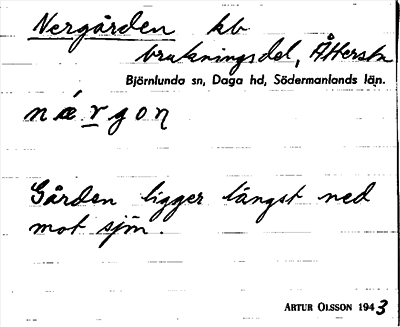 Nergården kb
brukningsdel, Åttersta
Björnlunda sn, Daga hd, Södermanlands län.
nǽrgoɳ
Gården ligger längst ned
mot sjön.
ARTUR OLSSON 1943